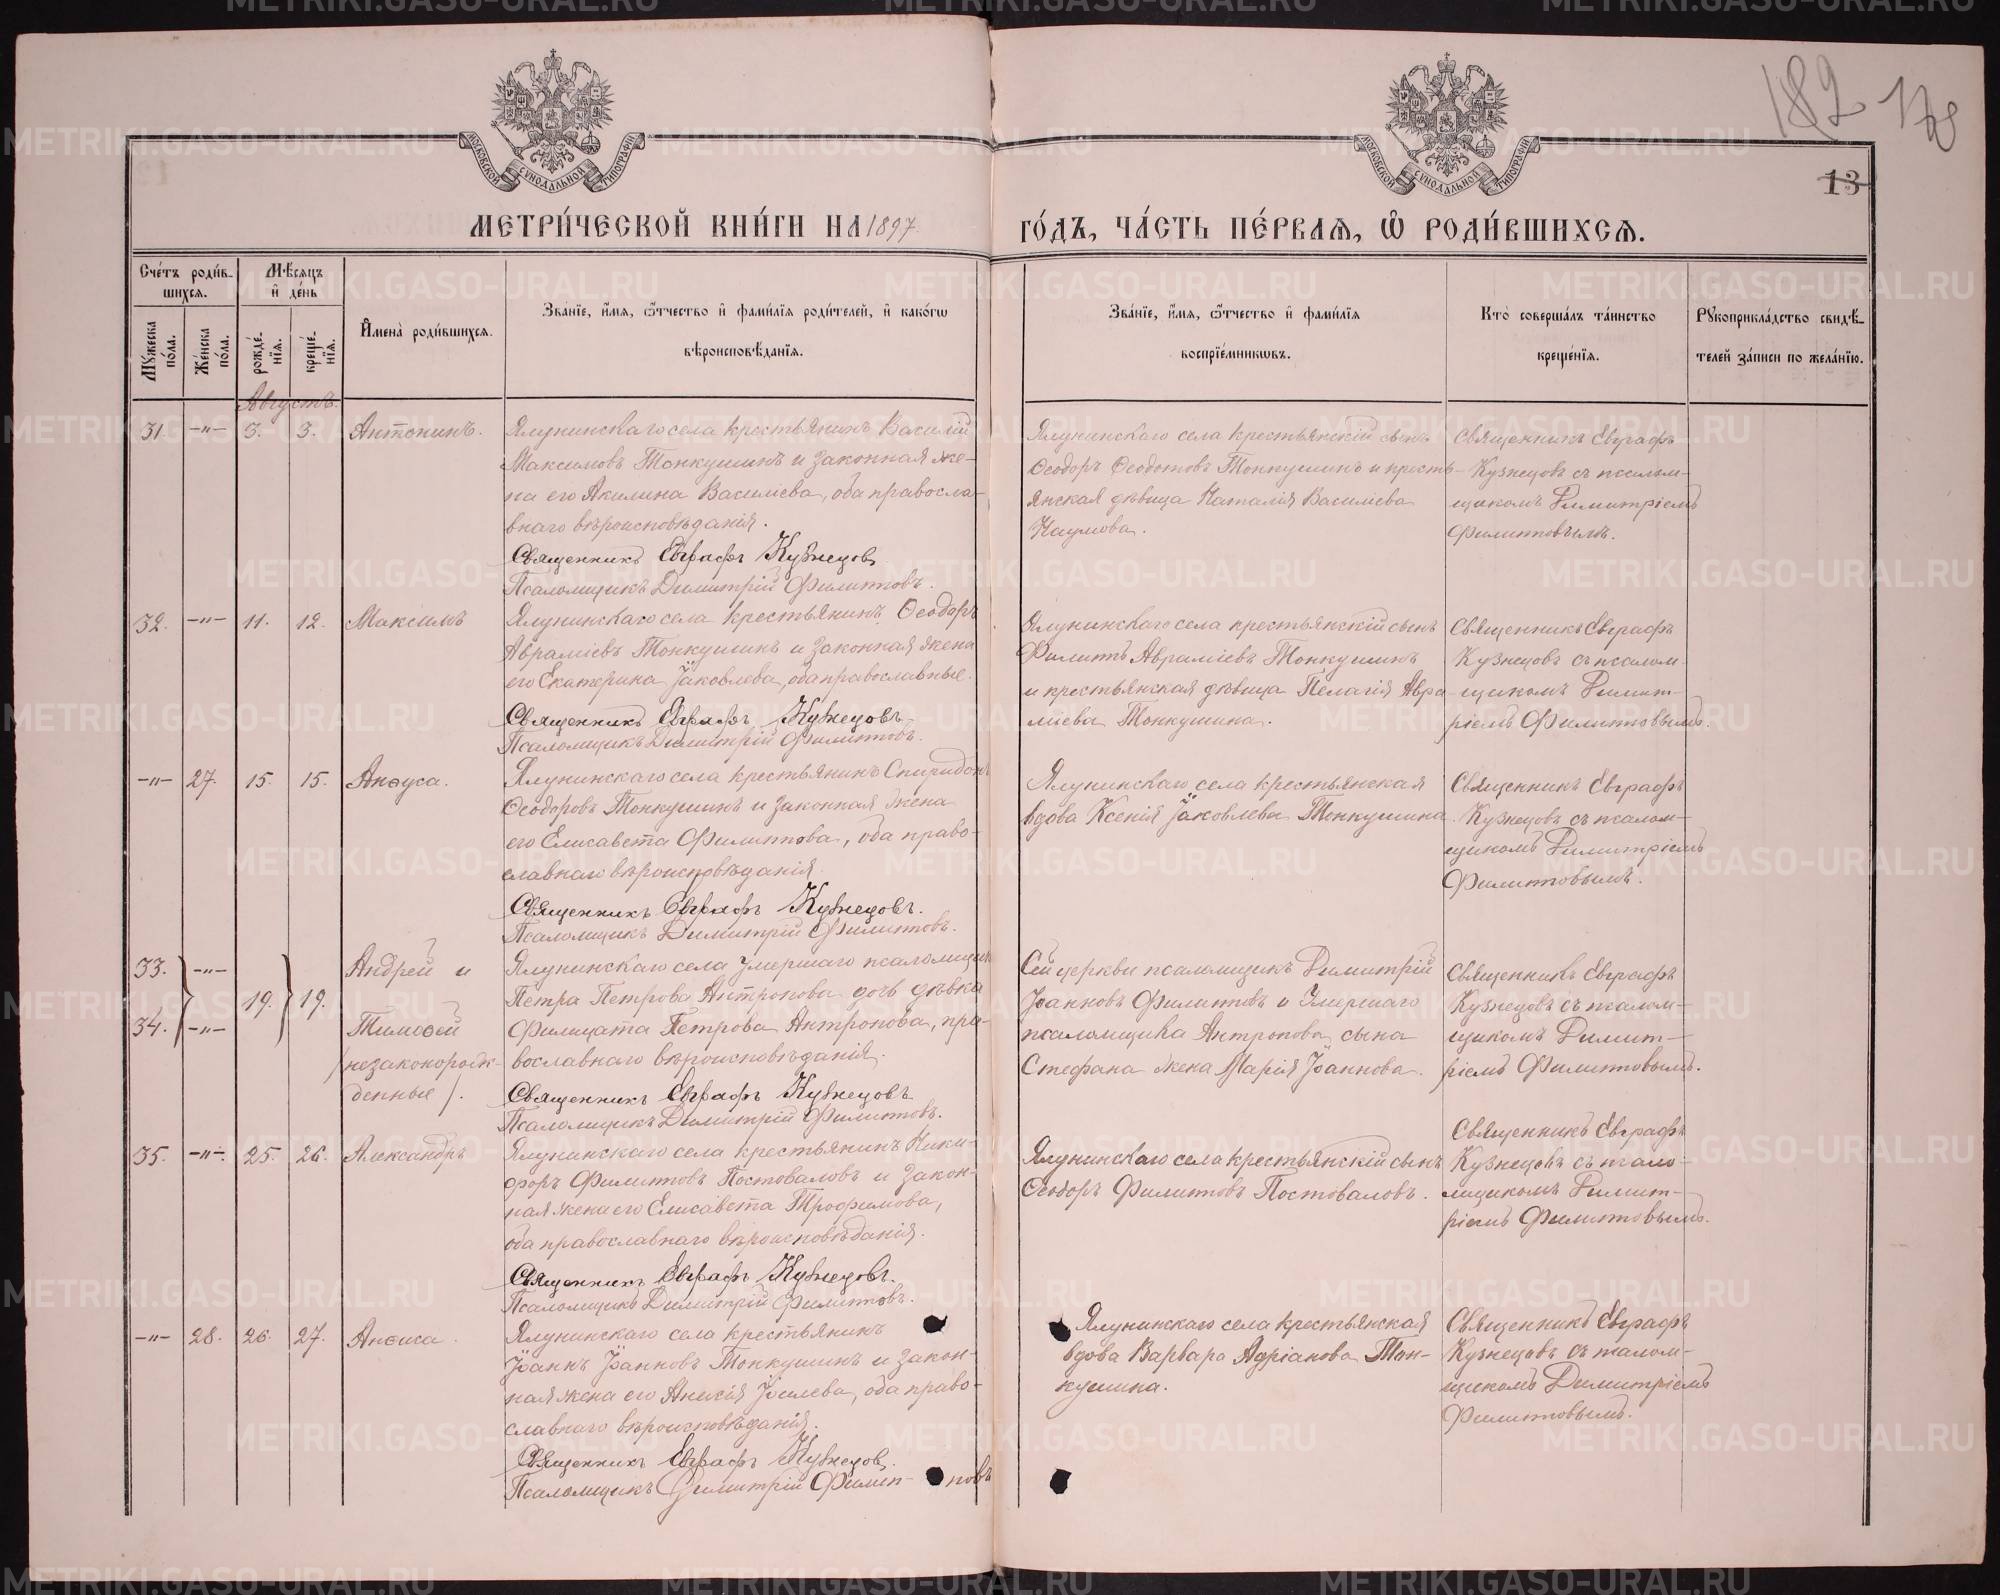 182 178
13
МОСКОВСКОЙ СѴНОДАЛЬНОЙ ТИПОГРАФІИ
МОСКОВСКОЙ СѴНОДАЛЬНОЙ ТИПОГРАФІИ
МЕТРИ́ЧЕСКОЙ КНИ́ГИ НА 1897. ГО́ДЪ, ЧА́СТЬ ПЕ́РВАѦ, Ѡ҆ РОДИ́ВШИХСѦ.
Сче́тъ роди́в-
шихсѧ.
Мꙋ́жеска по́ла.
Же́нска по́ла.
Мѣ́сѧцъ
и҆ де́нь
рожде́-
нїѧ.
креще́-
нїѧ.
И҆мена̀ роди́вшихсѧ.
Зва́нїе, и҆́мѧ, ѻ҆́тчество и҆ фами́лїѧ роди́телей, и҆ како́гѡ
вѣроисповѣ́данїѧ.
Зва́нїе, и҆́мѧ, ѻ҆́тчество и҆ фами́лїѧ
воспрїе́мникѡвъ.
Кто̀ соверша́лъ та́инство
креще́нїѧ.
Рꙋкоприкла́дство свидѣ́-
телей за́писи по жела́нїю.
Августъ.
31. -"- 3. 3. Антонинъ.
Ялунинскаго села крестьянинъ Василій
Максимовъ Тонкушинъ и законная же-
на его Акилина Василіева, оба правосла-
внаго вѣроисповѣданія.
Священникъ Евграфъ Кузнецовъ
Псаломщикъ Димитрій Филиповъ.
Ялунинскаго села крестьянскій сынъ
Ѳеодоръ Ѳеодотовъ Тонкушинъ и кресть-
янская дѣвица Наталія Василіева
Наумова.
Священникъ Евграфъ
Кузнецовъ съ псалом-
щикомъ Димитріемъ
Филиповымъ.
32. -"- 11. 12. Максимъ
Ялунинскаго села крестьянинъ Ѳеодоръ
Авраміевъ Тонкушинъ и законная жена
его Екатерина Іаковлева, оба православные.
Священникъ Евграфъ Кузнецовъ
Псаломщикъ Димитрій Филиповъ.
Ялунинскаго села крестьянскій сынъ
Филипъ Авраміевъ Тонкушинъ
и крестьянская дѣвица Пелагія Авра-
міева Тонкушина.
Священникъ Евграфъ
Кузнецовъ съ псалом-
щикомъ Димит-
ріемъ Филиповымъ.
-"- 27. 15. 15. Анѳуса.
Ялунинскаго села крестьянинъ Спиридонъ
Ѳеодоровъ Тонкушинъ и законная жена
его Елисавета Филипова, оба право-
славнаго вѣроисповѣданія
Священникъ Евграфъ Кузнецовъ.
Псаломщикъ Димитрій Филиповъ.
Ялунинскаго села крестьянская
вдова Ксенія Іаковлева Тонкушина
Священникъ Евграфъ
Кузнецовъ съ псалом-
щикомъ Димитріемъ
Филиповымъ.
33. -"- 19. 19. Андрей и
34. -"- Тимоѳей
/незаконорож-
денные/.
Ялунинскаго села умершаго псаломщика
Петра Петрова Антропова дочь дѣвка
Филицата Петрова Антропова, пра-
вославнаго вѣроисповѣданія.
Священникъ Евграфъ Кузнецовъ
Псаломщикъ Димитрій Филиповъ.
Сей церкви псаломщикъ Димитрій
Іоанновъ Филиповъ и умершаго
псаломщика Антропова сына
Стефана жена Марія Іоаннова.
Священникъ Евграфъ
Кузнецовъ съ псалом-
щикомъ Димит-
ріемъ Филиповымъ.
35. -"- 25. 26. Александръ
Ялунинскаго села крестьянинъ Ники-
форъ Филиповъ Постоваловъ и закон-
ная жена его Елисавета Трофимова,
оба православнаго вѣроисповѣданія.
Священникъ Евграфъ Кузнецовъ.
Псаломщикъ Димитрій Филиповъ.
Ялунинскаго села крестьянскій сынъ
Ѳеодоръ Филиповъ Постоваловъ.
Священникъ Евграфъ
Кузнецовъ съ псало-
мщикомъ Димит-
ріемъ Филиповымъ.
-"- 28. 26. 27. Анѳиса.
Ялунинскаго села крестьянинъ
Іоаннъ Іоанновъ Тонкушинъ и закон-
ная жена его Анисія Іовлева, оба право-
славнаго вѣроисповѣданія.
Священникъ Евграфъ Кузнецовъ.
Псаломщикъ Димитрій Филип-повъ
Ялунинскаго села крестьянская
вдова Варвара Адріанова Тон-
кушина.
Священникъ Евграфъ
Кузнецовъ съ псалом-
щикомъ Димитріемъ
Филиповымъ.
METRIKI.GASO-URAL.RU